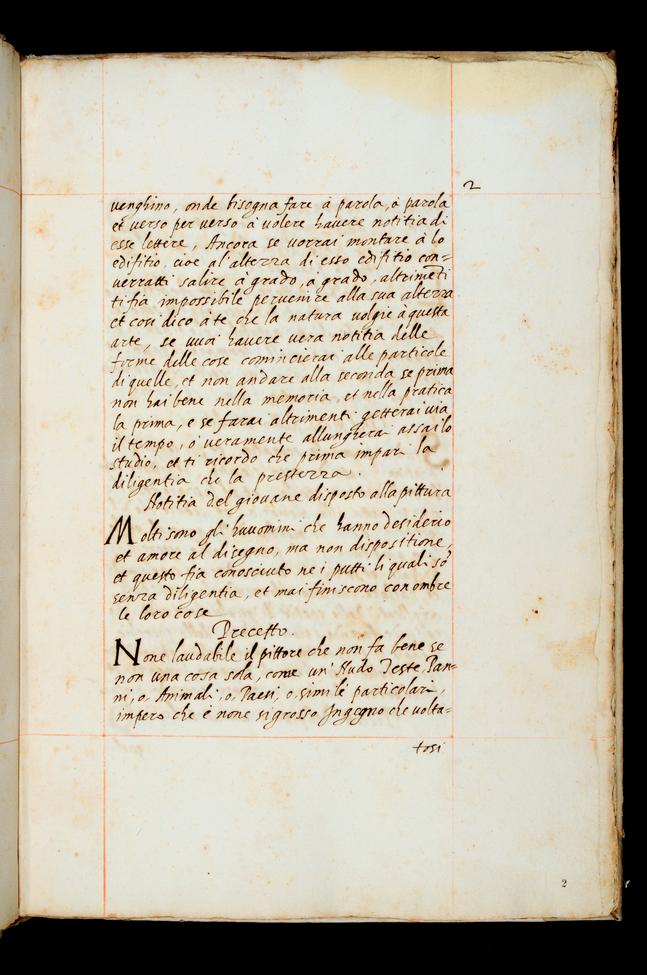 2
venghino, onde bisogna fare à parola, à parola
et verso per verso à volere havere notitia di
esse lettere, Ancora se vorrai montare à lo
edifitio, cioe al'altezza di esso edifitio con=
verratti salire à grado, à grado, altrimēti
ti fia impossibile pervenire alla sua altezza
et cosi dico à te che la natura volge à questa
arte, se vuoi havere vera notitia delle
forme delle cose comincierai alle particole
di quelle, et non andare alla seconda se prima
non hai bene nella memoria, et nella pratica
la prima, e se farai altrimenti getterai via
il tempo, o veramente allungherai assai lo
studio, et ti ricordo che prima impari la
diligentia che la prestezza.
Notitia del giovane disposto alla pittura
Molti sono gli huuomini che hanno desiderio
et amore al disegno, ma non dispositione,
et questo fia conosciuto nei putti li quali sō
senza diligentia, et mai finiscono con ombre
le loro cose
Precetto.
None laudabile il pittore che non fa bene se
non una cosa sola, come un' Nudo Teste Pan=
ni, o, Animali, o, Paesi, o, simile particolari,
impero che è none si grosso Ingegno che volta=
tosi
2